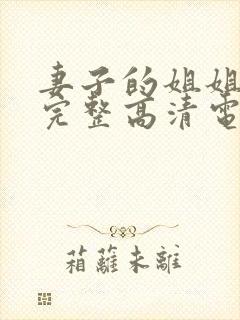 妻子的姐姐
完整高清電
箱蘿未離